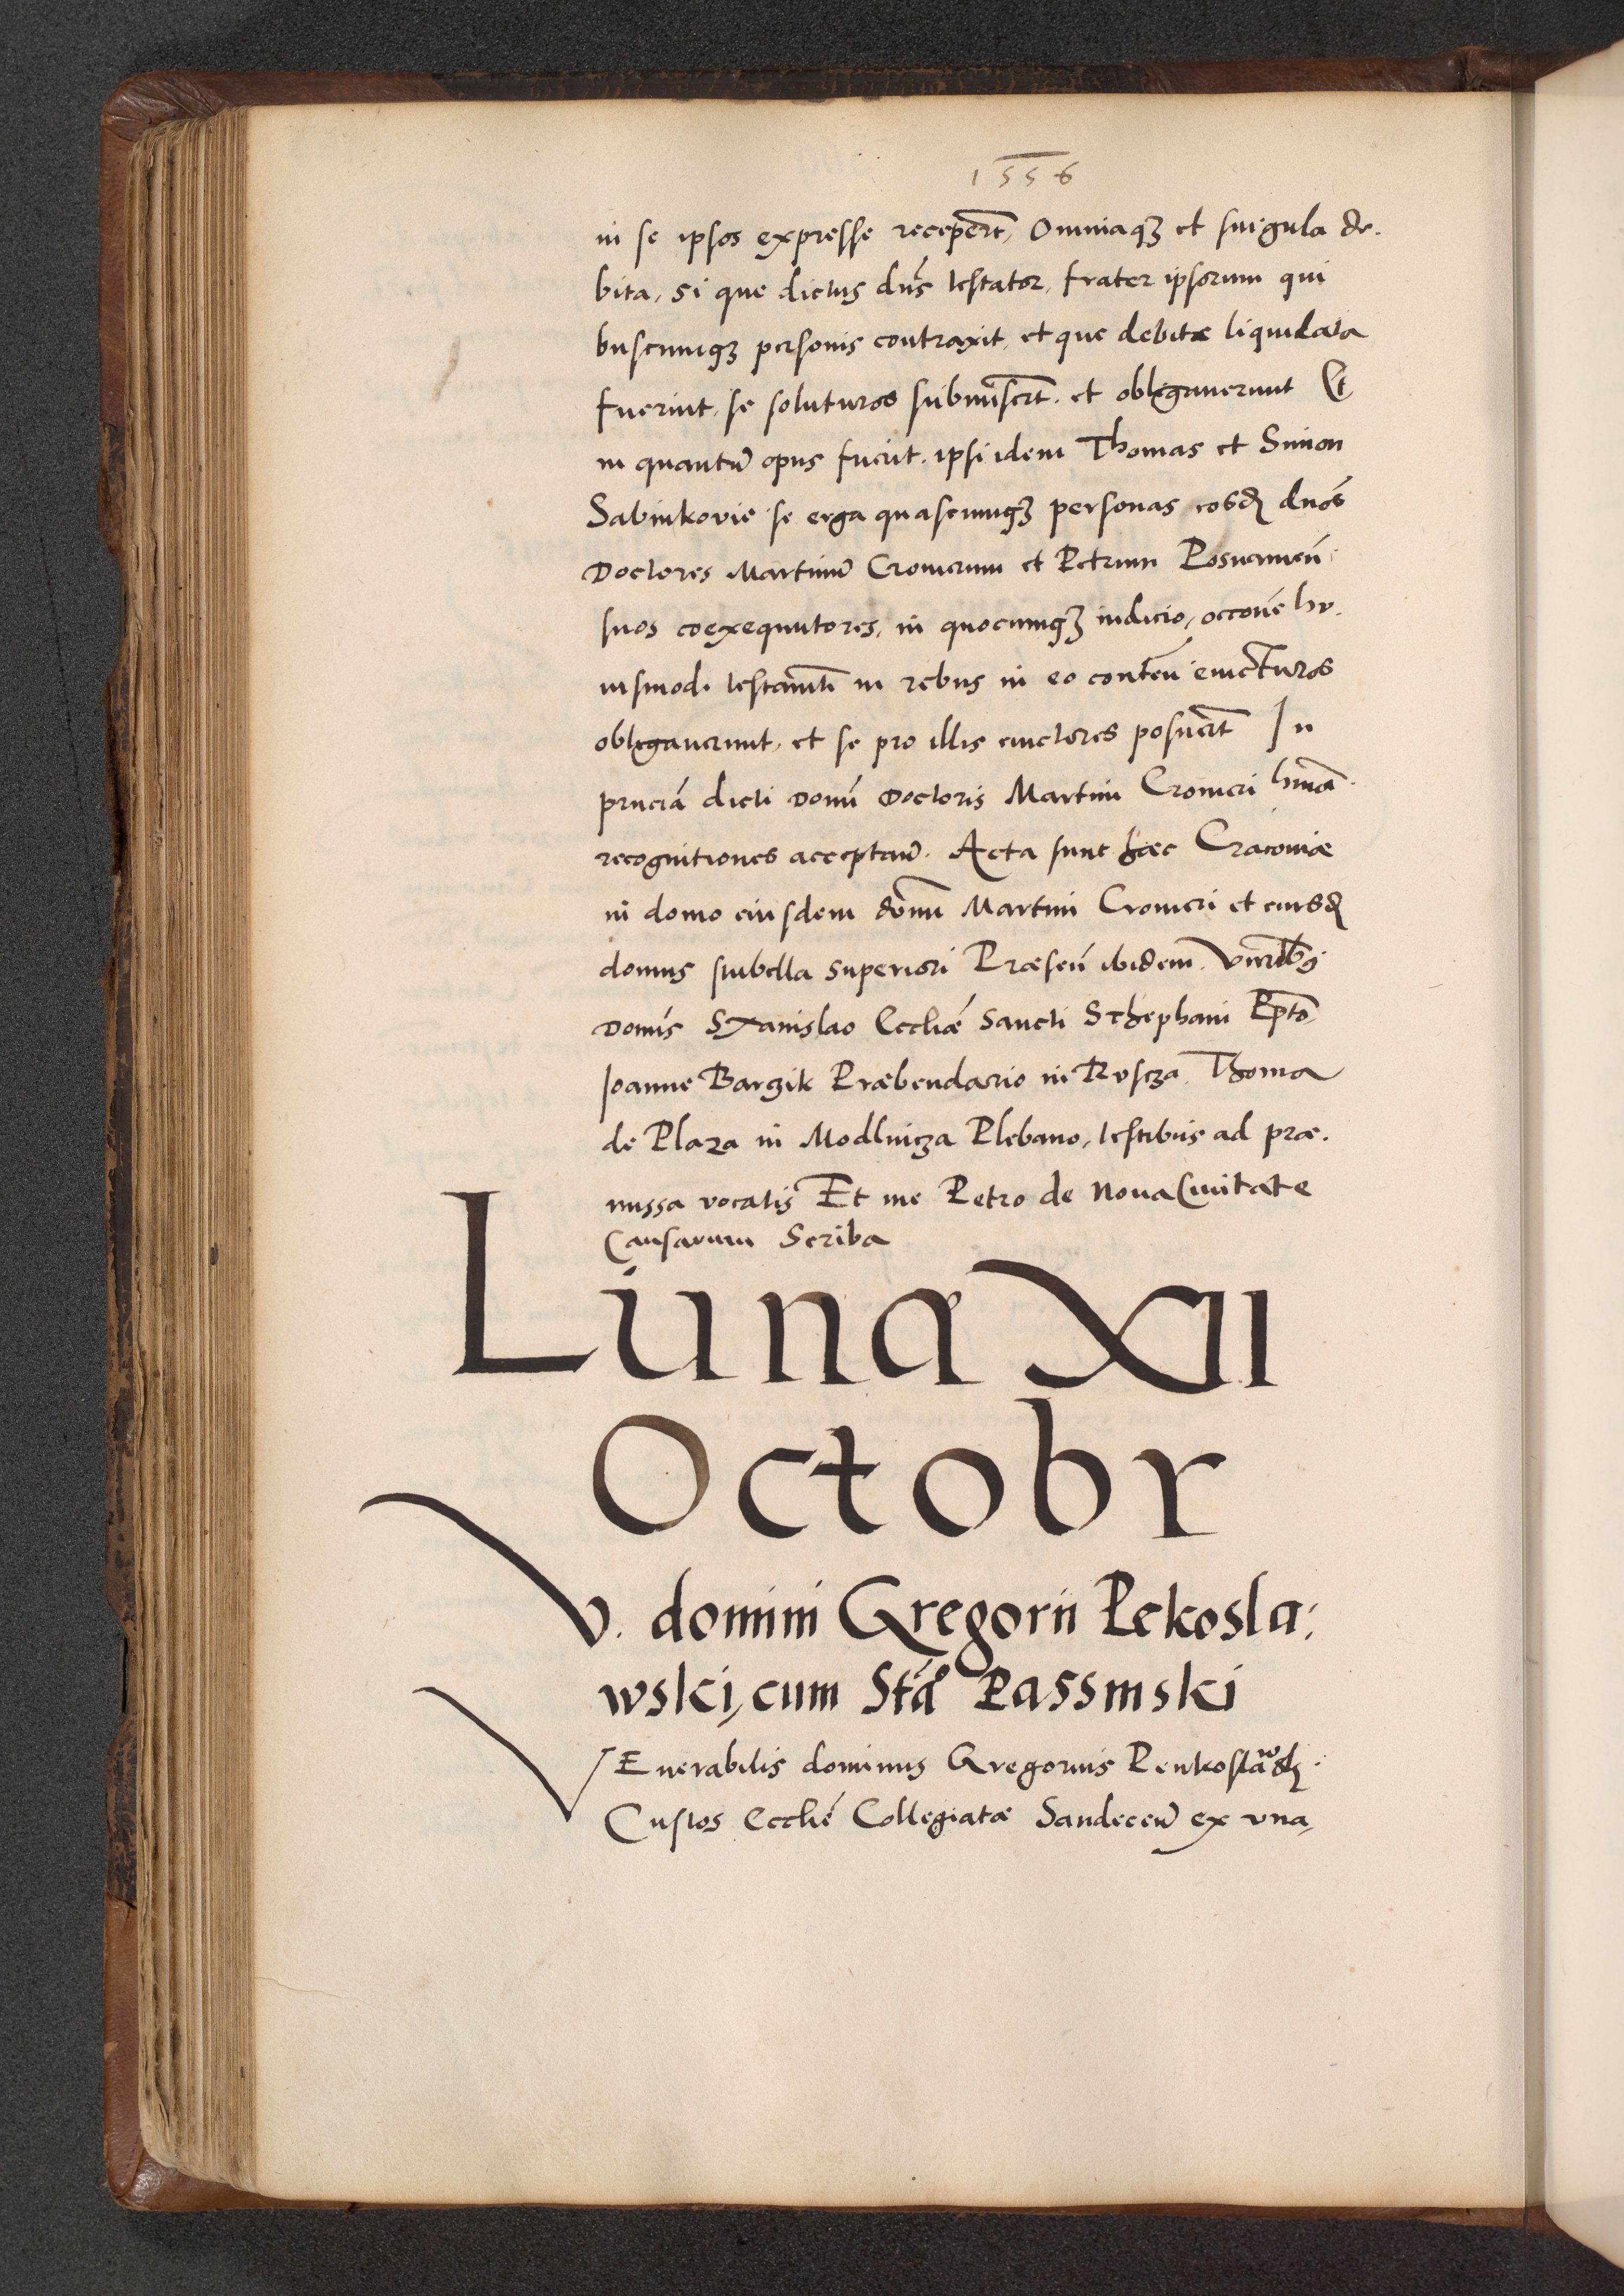 1556
in se ipsos expresse recepert, Omniaqȝ et singula de.
bita, si que dictus dns testator, frater ipsorum qui
buscumqȝ personis contraxit, et que debitæ liquidata
fuerint, se soluturos submisert. et obligauerunt Et
in quantū opus fuerit. ipsi idem Thomas et Simon
Sabinkovie se erga quascumqȝ personas eosdȝ dnos
Doctores Martinū Cromerum et Petrum Posnanień
suos coexequutores, in quocumqȝ iudicio, occone hu.
iusmodi testamti in rebus in eo conteń euicturos
obligauerunt, et se pro illis euictores posuert In
pnciā dicti Domi Doctoris Martini Cromeri hmoi
recognitiones acceptań. Acta sunt hæc Cracoviæ
in domo eiusdem domi Martini Cromeri et eiusdȝ
domus stubella superiori Præseń ibidem. Vnrabilibꝯ
Domis Stanislao Ecclīæ Sancti Schephani
Joanne Barzik Præbendario in Rvscza. Thoma
de Plaza in Modlnicza Plebano, testibus ad præ.
missa vocatis Et me Petro de Noua Ciuitate
Causarum Scriba
Luna XII
Octobr
V. domini Gregorii Pekosla:
wski, cum Stāo Passinski
VEnerabilis dominus Gregorius Penkoslawskȝ.
Custos Ecclīe Collegiatæ Sandeceń ex vna,